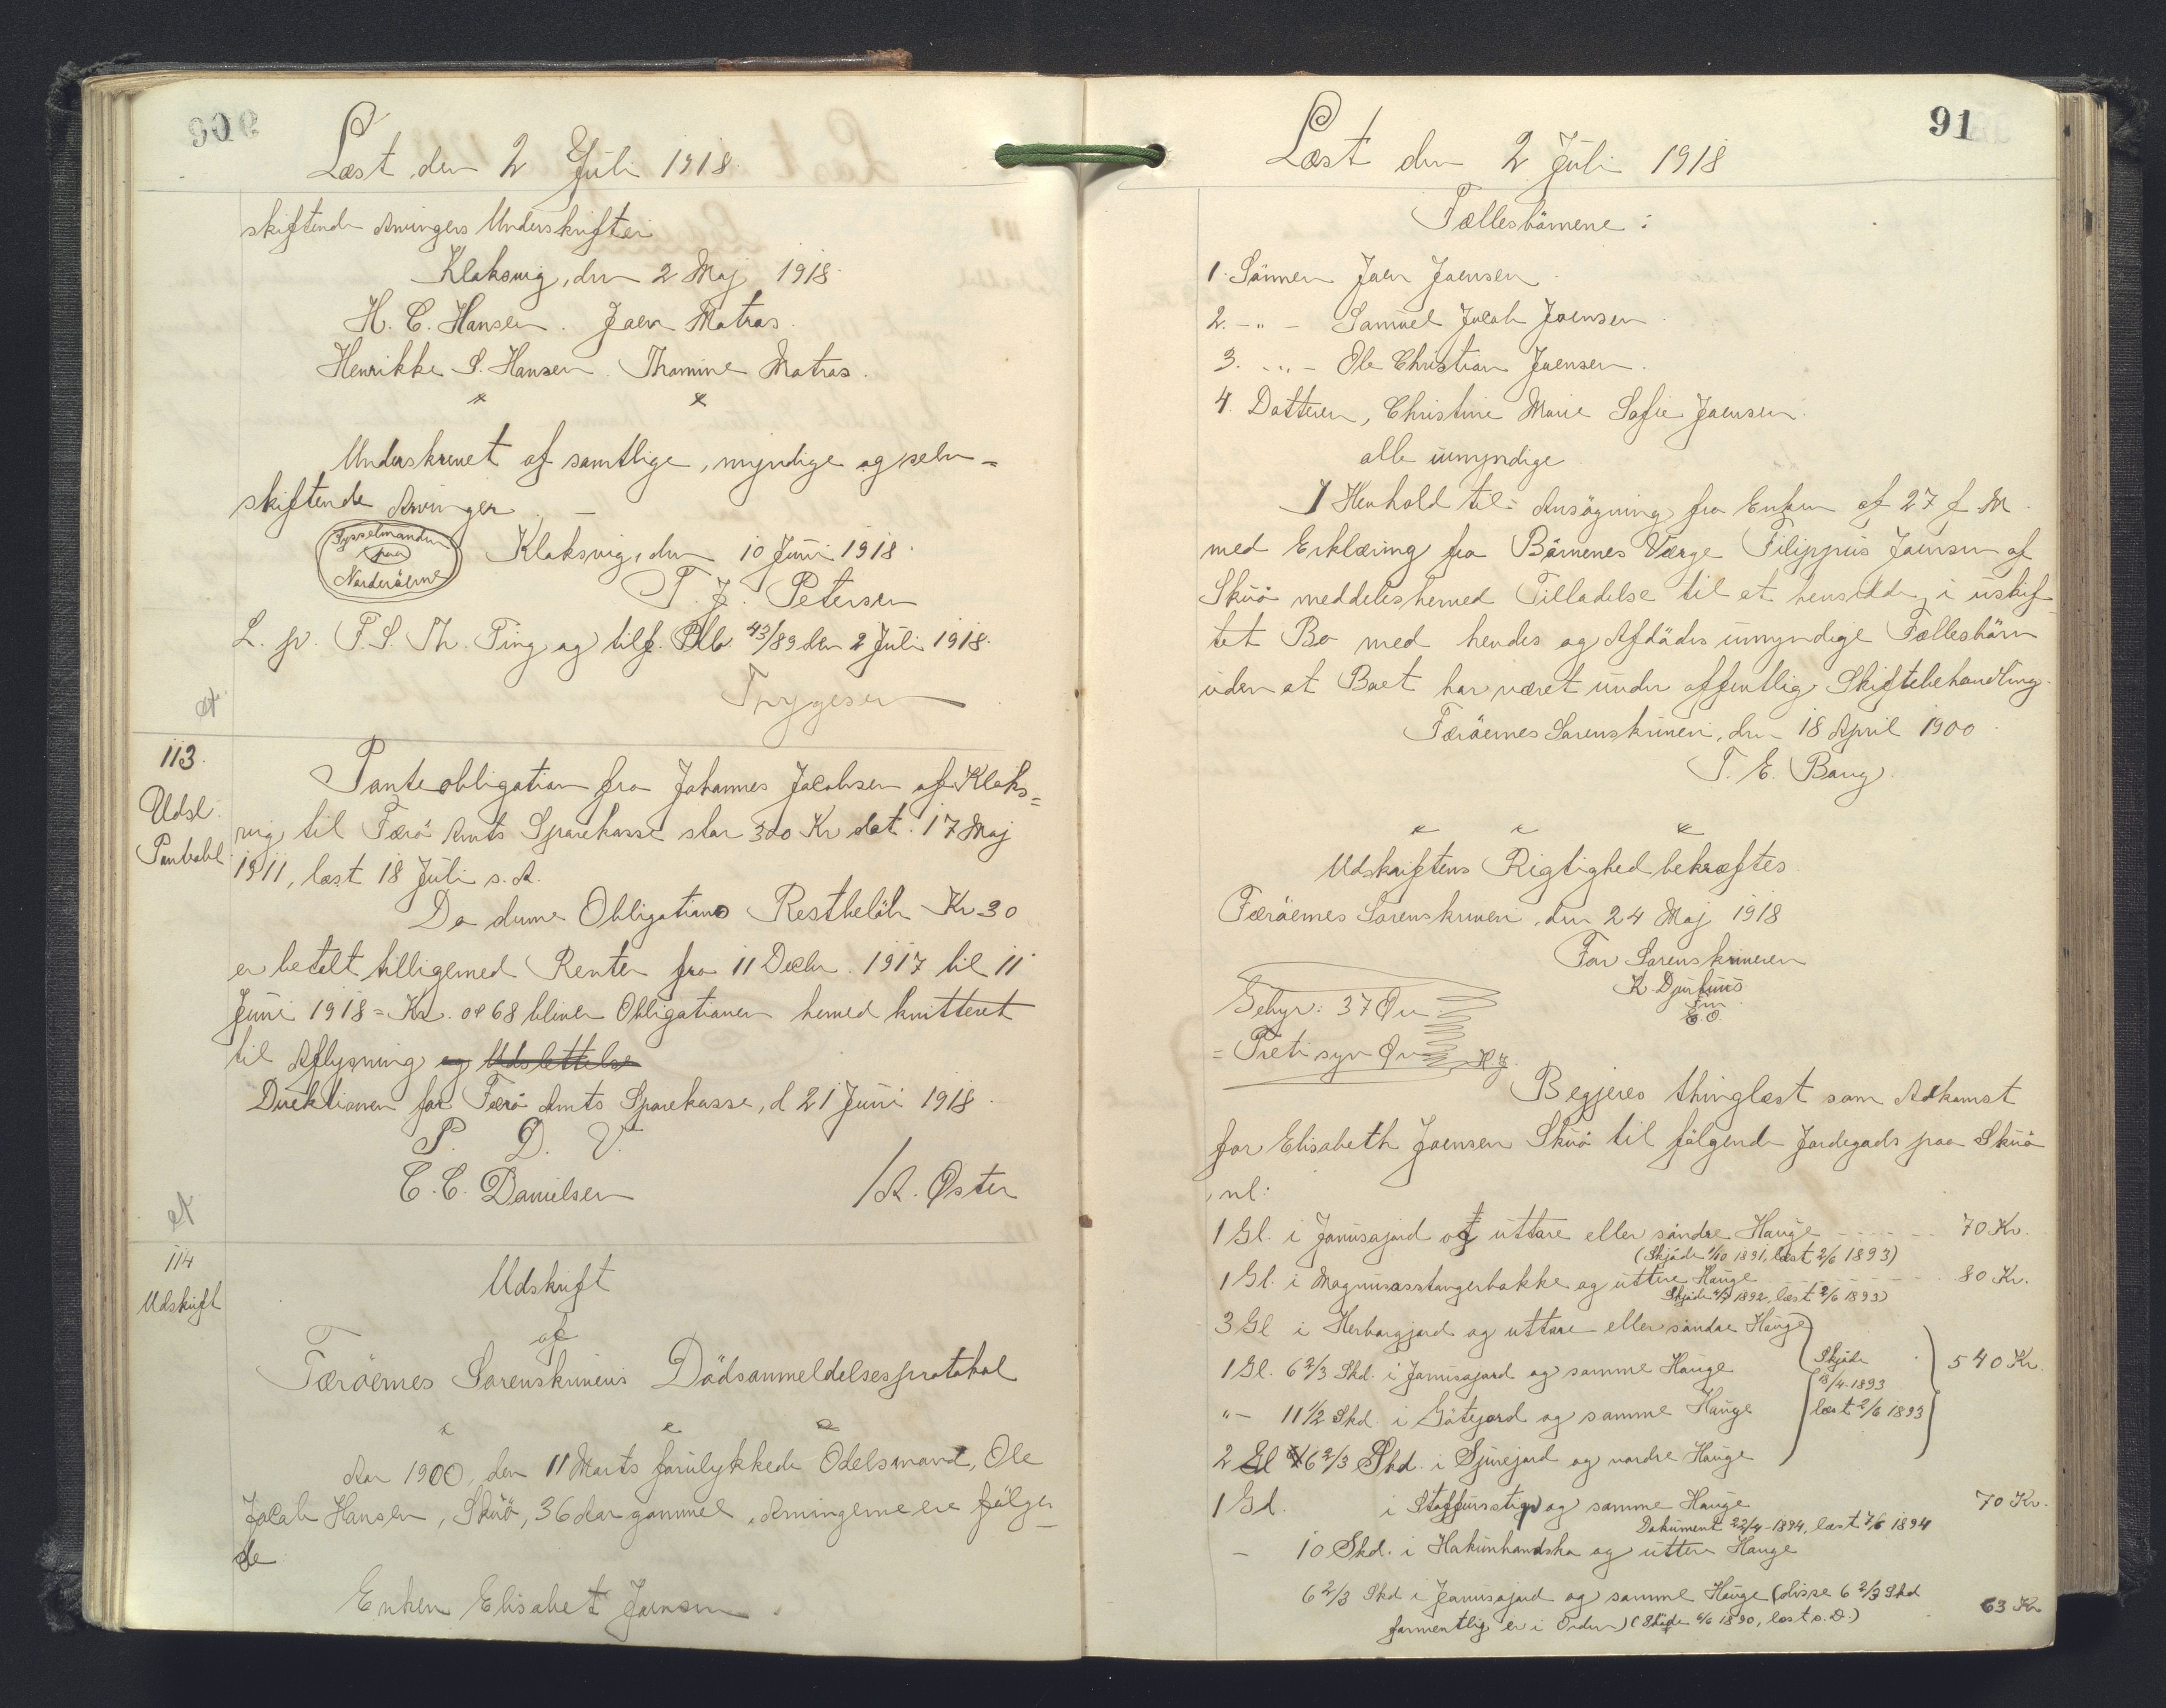 Læst den 2 Juli 1918.
skiftende Arvingers Underskrifter
Klaksvig, den 2 Maj 1918.
H. C. Hansen. Joen Matras.
Henrikke S. Hansen. Thomine Matras.
Underskrevet af samtlige, myndige og selv=
skiftende Arvinger.
Sysselmanden
paa
Norderöerne
Klaksvig, den 10 Juni 1918.
P. J. Petersen
L. p. F. S. Th. Ting og tilf. Ptb. 43/89 den 2 Juli 1918.
Thygesen
113.
Udsl.
Pantobl.
Panteobligation fra Johannes Jacobsen af Klaks=
vig til Færö Amts Sparekasse stor 300 Kr dat. 17 Maj
1911, læst 18 Juli s. A.
Da denne Obligations Restbelöb Kr 30
er betalt tilligemed Renter fra 11 Decbr. 1917 til 11
Juni 1918 = Kr. 0 68 bliver Obligationen herved kvitteret
til Aflysning og Udslettelse
Direktionen for Færö Amts Sparekasse, d 21 Juni 1918.
P. D. V.
C. C. Danielsen /A. Øster
114
Udskrift
Udskrift
af
Færöernes Sorenskriveris Dödsanmeldelsesprotokol
Aar 1900, den 11 Marts forulykkede Odelsmand, Ole
Jacob Hansen, Skuö, 36 Aar gammel. Arvingerne ere fölgen
de
Enken Elisabet Joensen.
91
Læst den 2 Juli 1918
Fællesbörnene:
1. Sönnen Joen Joensen
2. -"- Samuel Jacob Joensen
3. -"- Ole Christian Joensen.
4. Datteren, Christine Marie Sofie Joensen.
alle umyndige
I Henhold til Ansögning fra Enken af 27 f. M.
med Erklæring fra Börnenes Værge Filippus Joensen af
Skuö meddeles herved Tilladelse til at hensidde i uskif
tet Bo med hendes og Afdödes umyndige Fællesbörn
uden at Boet har været under offentlig Skiftebehandling.
Færöernes Sorenskriveri, den 18 April 1900
T. E. Bang.
Udskriftens Rigtighed bekræftes.
Færöernes Sorenskriveri, den 24 Maj 1918
For Sorenskriveren
K. Djurhuus
fm.
E.O
Gebyr: 37 Øre
= Treti syv Øre
Begjeres thinglæst som Adkomst
for Elisabeth Joensen Skuö til fölgende Jordegods paa Skuö
, nl:
1 Gl. i Janusajord og uttare eller söndre Hauge 70 Kr.
(Skjöde 1/10 1891, læst 2/6 1893)
1 Gl. i Magnusasstangerbakke og uttere Hauge 80 Kr.
Skjöde 4/7 1892, læst 2/6 1893)
3 Gl i Herbargjord og uttare eller söndre Hauge
1 Gl. 6 2/3 Skd. i Janusajord og samme Hauge
"- 11 1/2 Skd. i Götejord og samme Hauge
2 Gl 6 2/3 Skd. i Sjurejord og nordre Hauge
Skjöde
18/4-1893
læst 2/6 1893
540 Kr.
1 Gl. i Staffusstip og samme Hauge 70 Kr.
Dokument 22/4-1894, læst 7/6 1894
- 10 Skd. i Hakunhandska og uttere Hauge
6 2/3 Skd i Janusajord og samme Hauge (disse 6 2/3 Skd
formentlig er i Orden) (Skjöde 6/6 1890, læst s. D.)
63 Kr